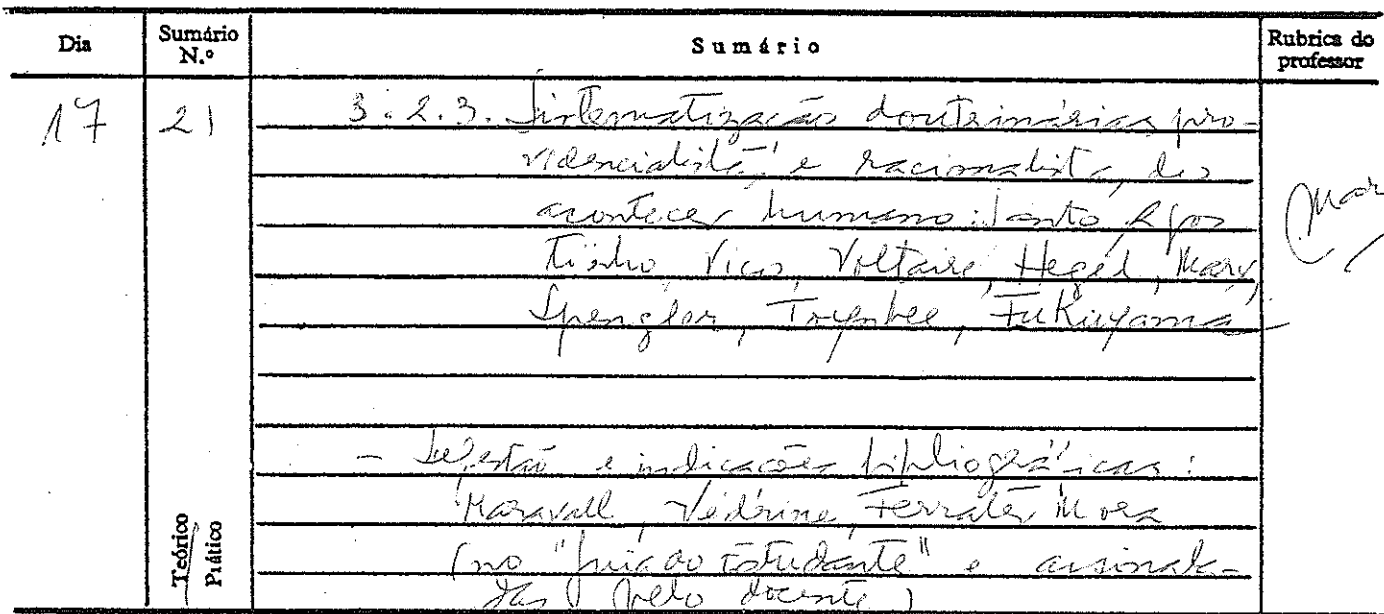 Dia Sumário N.º Sumário Rubrica do professor
17 21 3.2.3. Sistematização doutrinárias, pro-
videncialista e racionalista, do
acontecer humano: Santo Agos
tinho, Vico, Voltaire, Hegel, Marx,
Spengler, Toynbee, Fukuyama
- Sugestão e indicações bibliográficas:
Maravall, Védrine, Ferrater Mora
(no "Guia do Estudante" e assinala-
das pelo docente)
Teórico
Prático